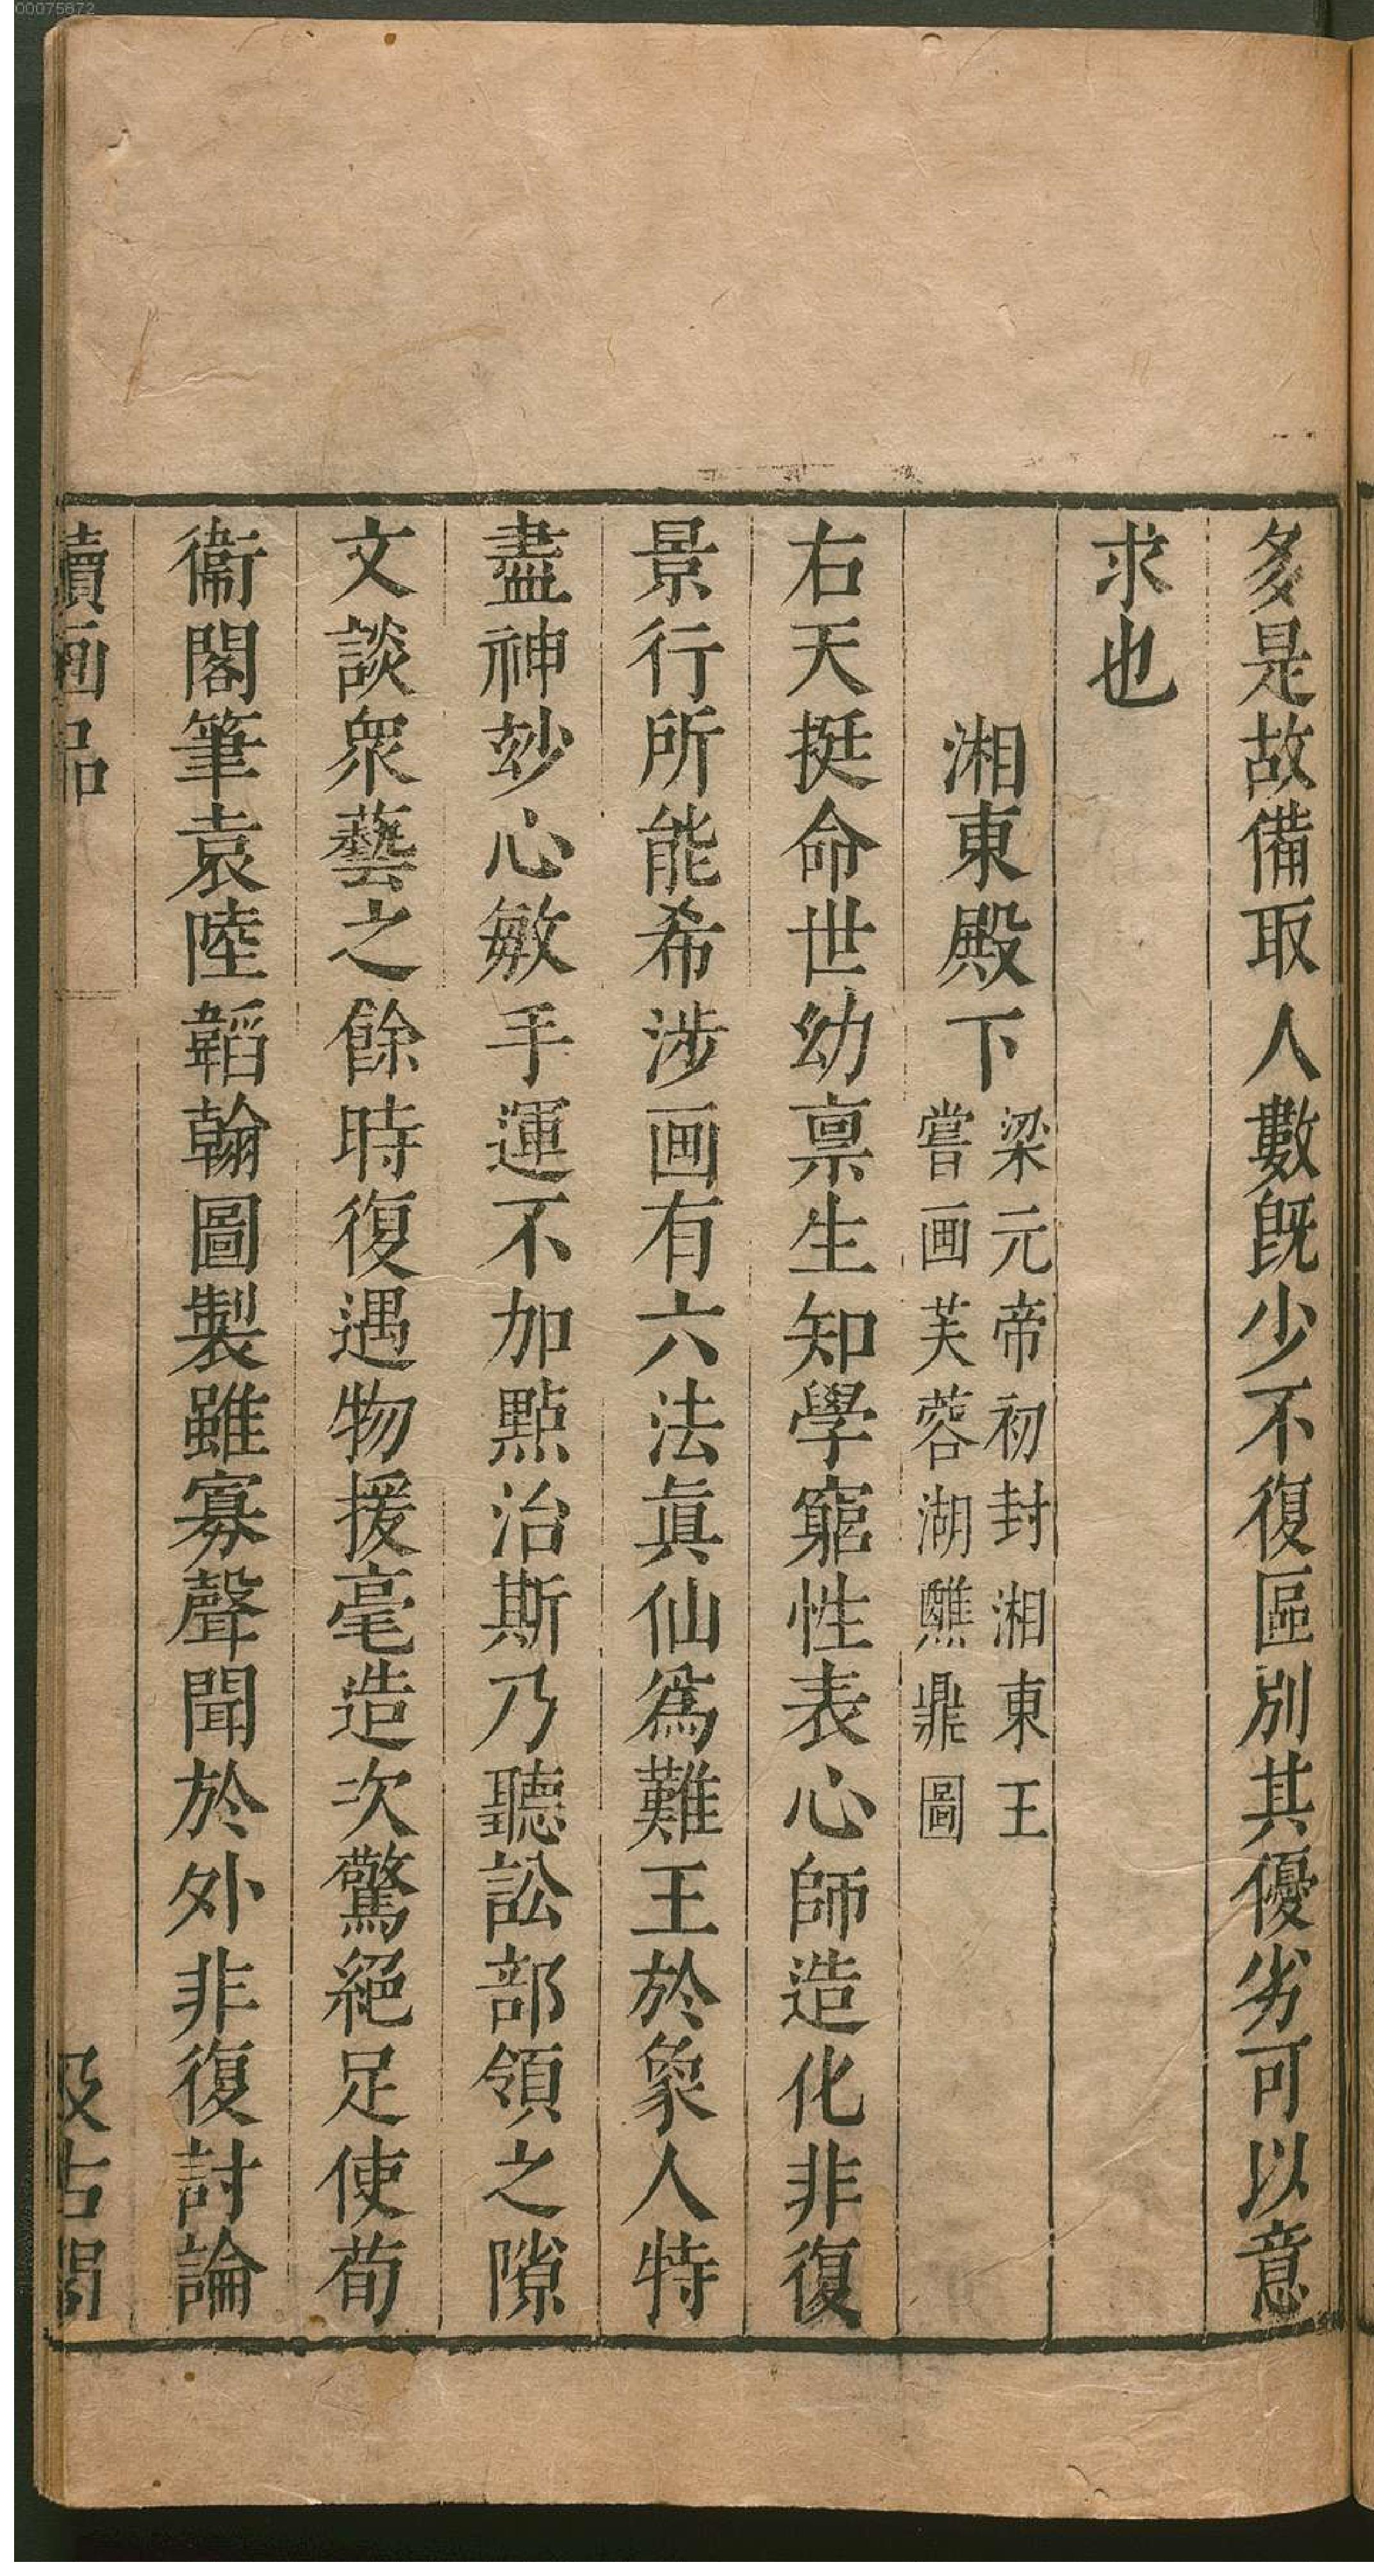 多是故備取人數旣少不復區別其優劣可以意
求也
湘東殿下
梁元帝初封湘東王
嘗画芙蓉湖醮鼎圖
右天挺命世幼禀生知學窮性表心師造化非復
景行所能希涉画有六法眞仙爲難王於象人特
盡神玅心敏手運不加㸃治斯乃聽訟部領之隙
文談衆藝之餘時復遇物援毫造次驚絕足使荀
衞閣筆袁陸韜翰圖製雖寡聲聞於外非復討論
續画品
汲古閣
00075672